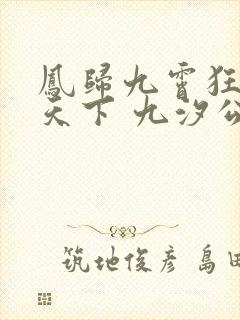 鳳歸九霄狂
天下 九汐公
筑地俊彦 島田